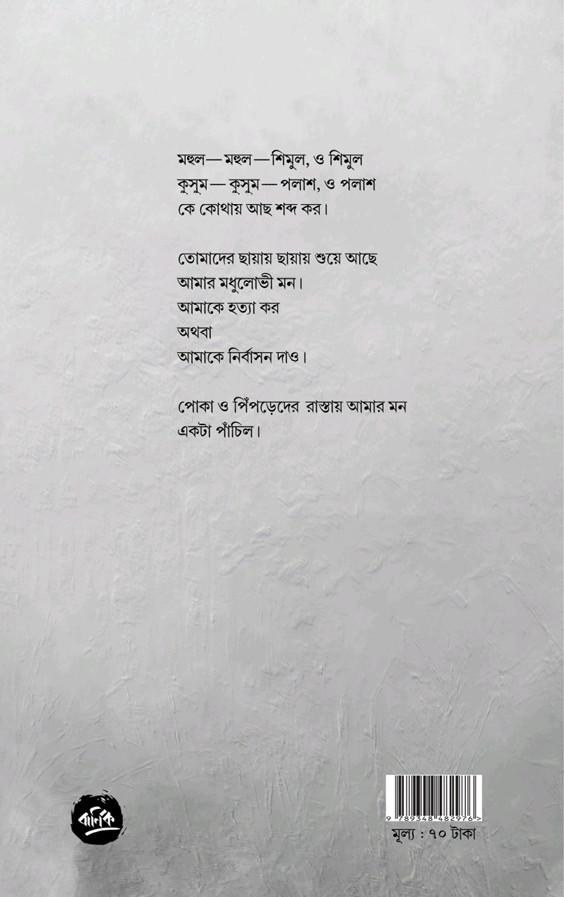 মহুল— মহুল—শিমুল, ও শিমুল
কুসুম— কুসুম— পলাশ, ও পলাশ
কে কোথায় আছ শব্দ কর।
তোমাদের ছায়ায় ছায়ায় শুয়ে আছে
আমার মধুলোভী মন।
আমাকে হত্যা কর
অথবা
আমাকে নির্বাসন দাও।
পোকা ও পিঁপড়েদের রাস্তায় আমার মন
একটা পাঁচিল।
বার্ণিক
9 789348 482976 >
মূল্য : ৭০ টাকা